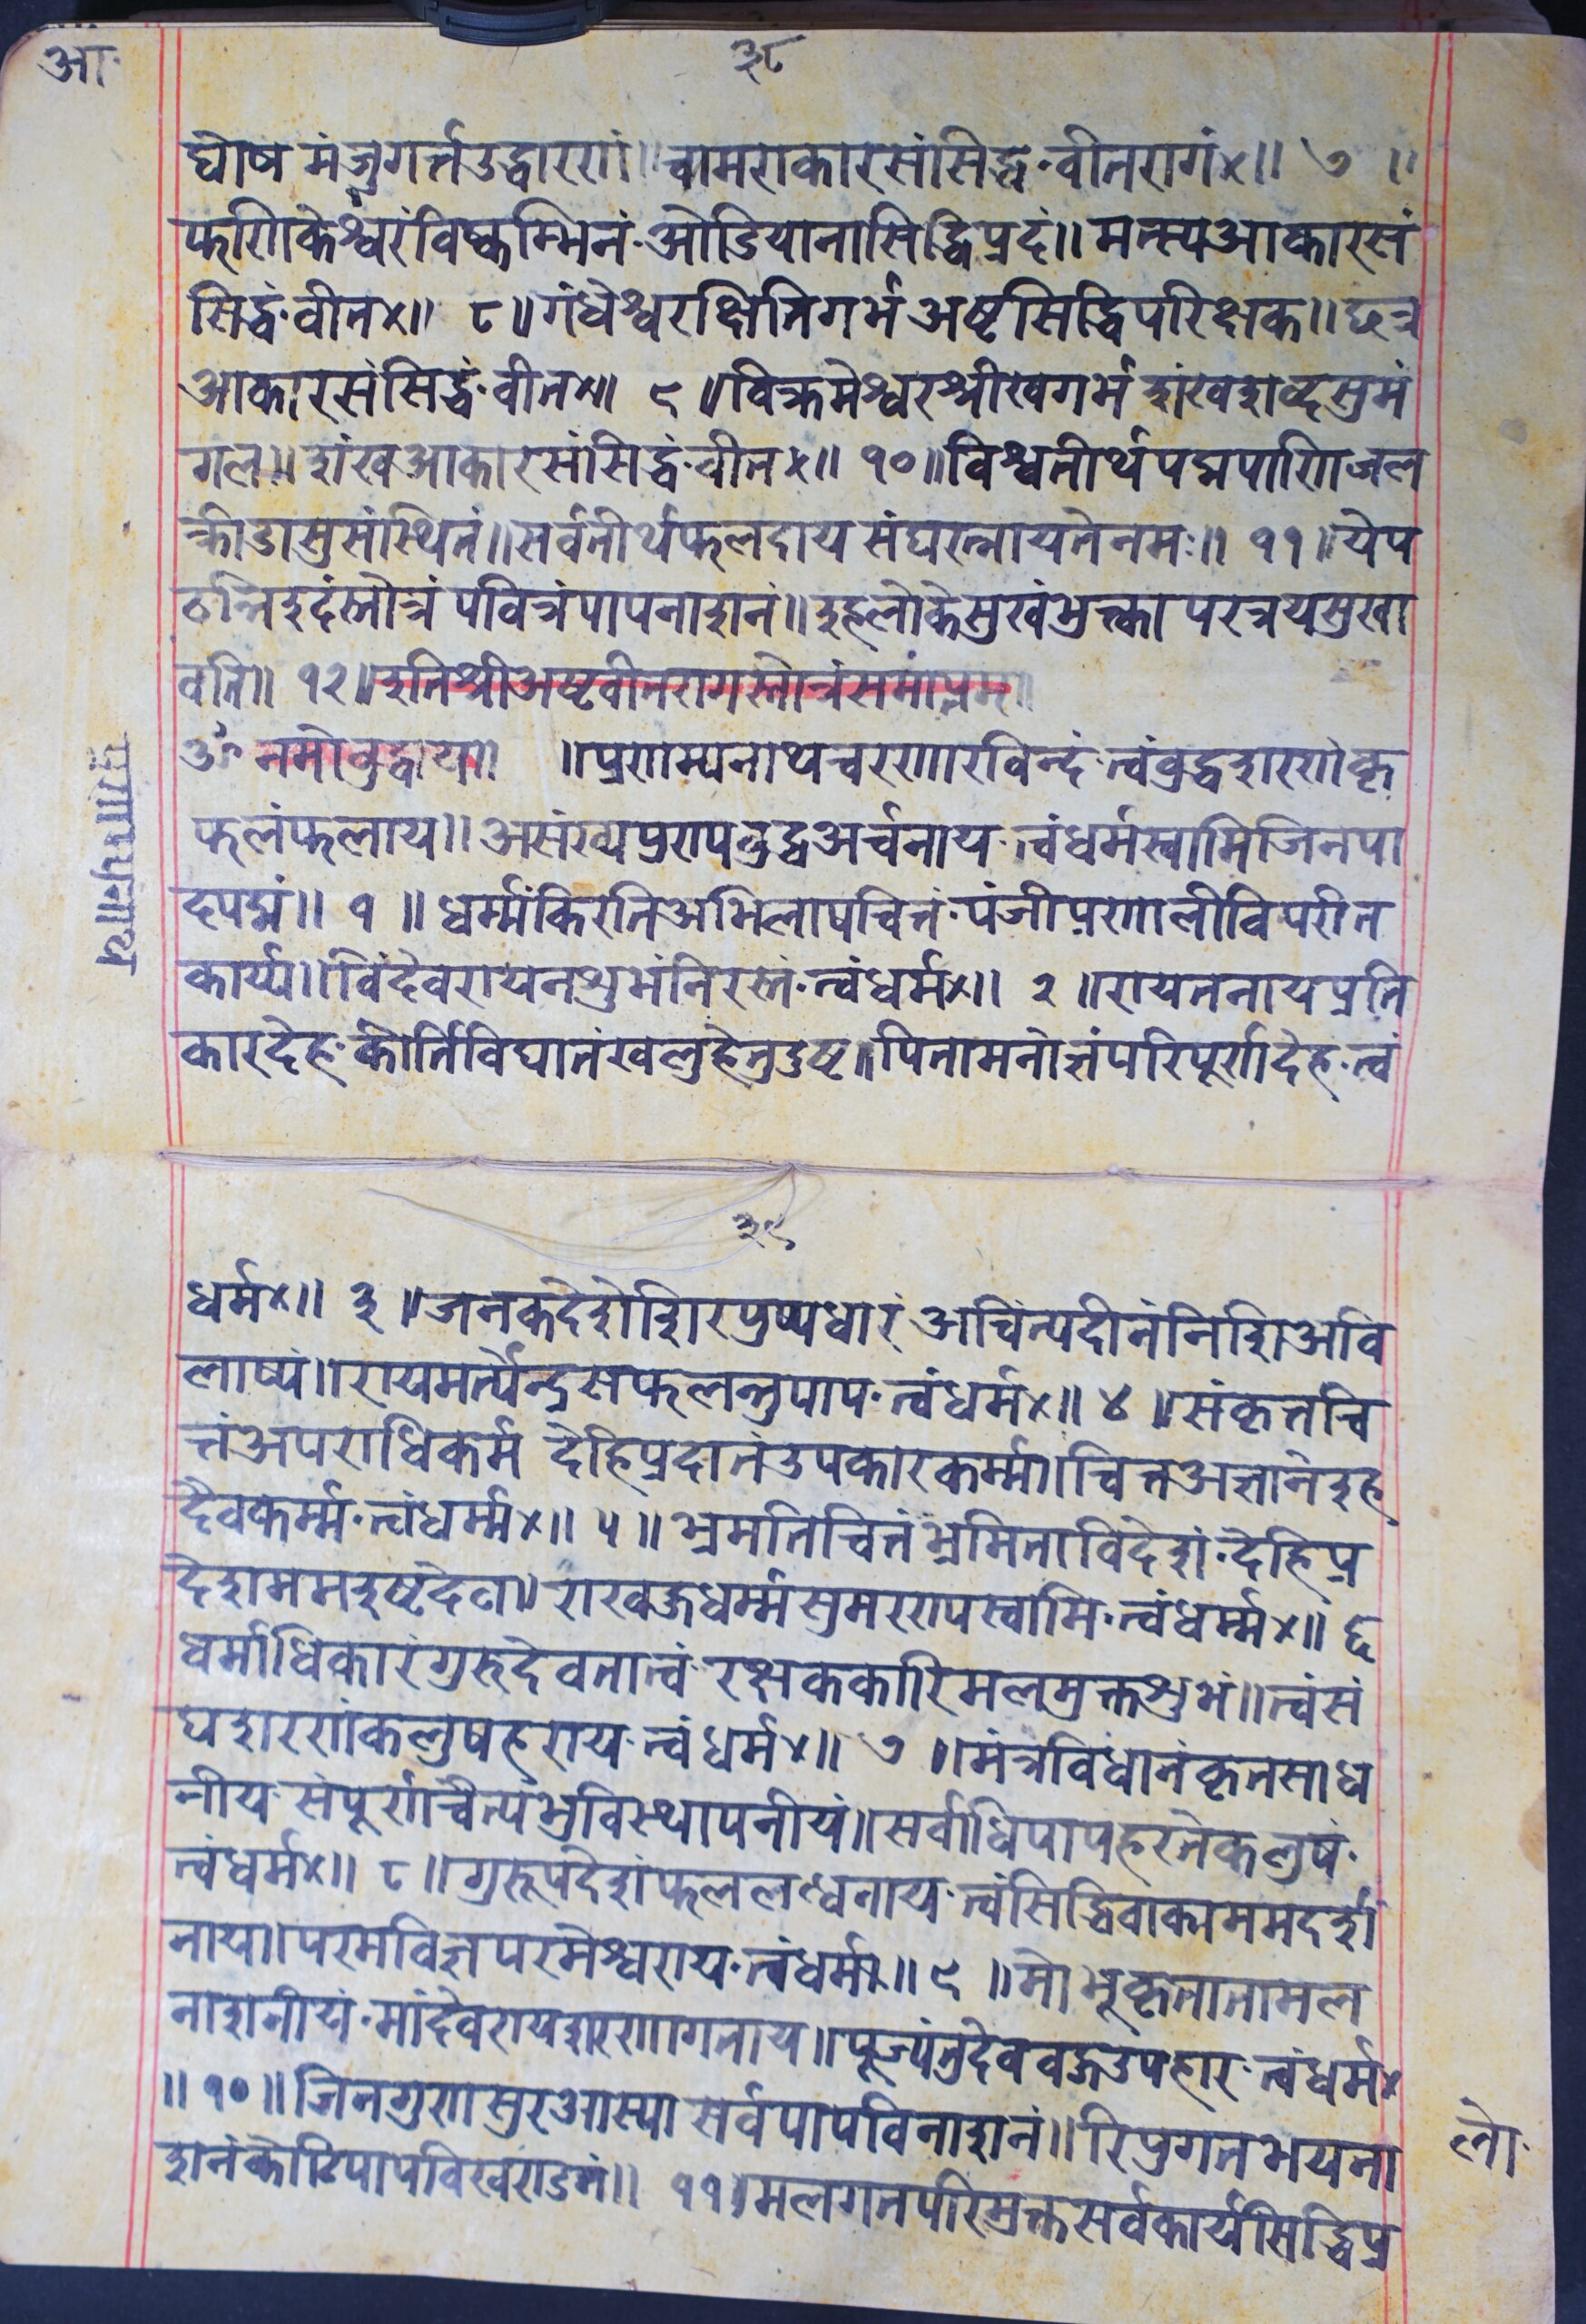 आ॰
३८
घोष मंजुगर्त्तउद्धारणं॥चामराकारसंसिद्ध॰वीतरागं×॥ ७ ॥
फणिकेश्वरंविष्कम्भिनं॰ओडियानासिद्धिप्रदं॥मत्स्यआकारसं
सिद्धं॰वीत×॥ ८॥गंधेश्वरक्षितिगर्भअष्टसिद्धिपरिक्षक॥छत्र
आकारसंसिद्धं॰वीत×॥ ९॥विक्रमेश्वरश्रीखगर्भशंखशब्दसुमं
गल॥शंखआकारसंसिद्धं॰वीत×॥ १०॥विश्वतीर्थपद्मपाणिजल
क्रीडासुसंस्थितं॥सर्वतीर्थफलदायसंघरत्नायतेनमः॥ ११॥येप
ठन्तिइदंस्तोत्रंपवित्रंपापनाशनं॥इहलोकेसुखंभुक्त्वा परत्रयसुखा
वति॥ १२॥इतिश्रीअष्टवीतरागस्तोत्रंसमाप्तम्॥
ॐ नमोबुद्धाय॥ ॥प्रणाम्यनाथचरणारविन्दं॰त्वंबुद्धशरणोकृ
फलंफलाय॥असंख्यप्रणपबुद्धअर्चनाय॰त्वंधर्मस्वामिजिनपा
दपद्मं॥ १ ॥धर्म्मंकिरतिअभिलाषचितं॰पंजीप्रणालीविपरीत
कार्य्य॥विंदेवरायेनशुभंनिरस्तं॰त्वंधर्म×॥ २ ॥रायननायप्रति
कारदेह॰कीर्तिविघानंखलुहेतुउष्ट॥पितामनोत्तंपरिपूर्णदेह॰त्वं
प्रणाम्यनाथ
३९
धर्म×॥ ३ ॥जनकदेशेशिरपुष्पधारंअचिंत्यदीनंनिशिअवि
लाष्यं॥रायमर्त्त्येन्द्रसफलन्तुपाप॰त्वंधर्म×॥ ४ ॥संकृत्तचि
त्तंअपराधिकर्मदेहिप्रदानंउपकारकर्म्म॥चित्तअत्तानेइह
दैवकर्म्म॰त्वंधर्म्म×॥ ५ ॥भ्रमतिचितंभ्रमिताविदेशं॰देहिप्र
देशममइष्टदेव॥राखज्जधर्म्मसुमरणपस्वामि॰त्वंधर्म्म×॥ ६
धर्माधिकारंगुरुदेवतात्वं॰रक्षककारिमलमुक्तशुभं॥त्वंसं
घशरणंकलुषहराय॰त्वंधर्म×॥ ७ ॥मंत्रविधानंकृतसाध
नीय॰संपूर्णचैत्यंभुविस्थापनीयं॥सर्वाधिपापहरनेकलुषं॰
त्वंधर्म×॥ ८॥गुरूपदेशंफललब्धनाय॰त्वंसिद्धिवाक्यममदर्श
नाय॥परमविज्ञपरमेश्वराय॰त्वंधर्म×॥ ९ ॥मोभूकृतानामल
नाशनीयं॰मांदेवरायशरणागनाय॥पूज्यंतुदेववज्रउपहार॰त्वंधर्म×
॥ १०॥जिनगुणसुरआस्यासर्वपापविनाशनं॥रिपुगनभयना
शनंकोटिपापविखण्डनं॥ ११॥मलगनपरिमुक्तसर्वकार्यसिद्धिप्र
लो॰